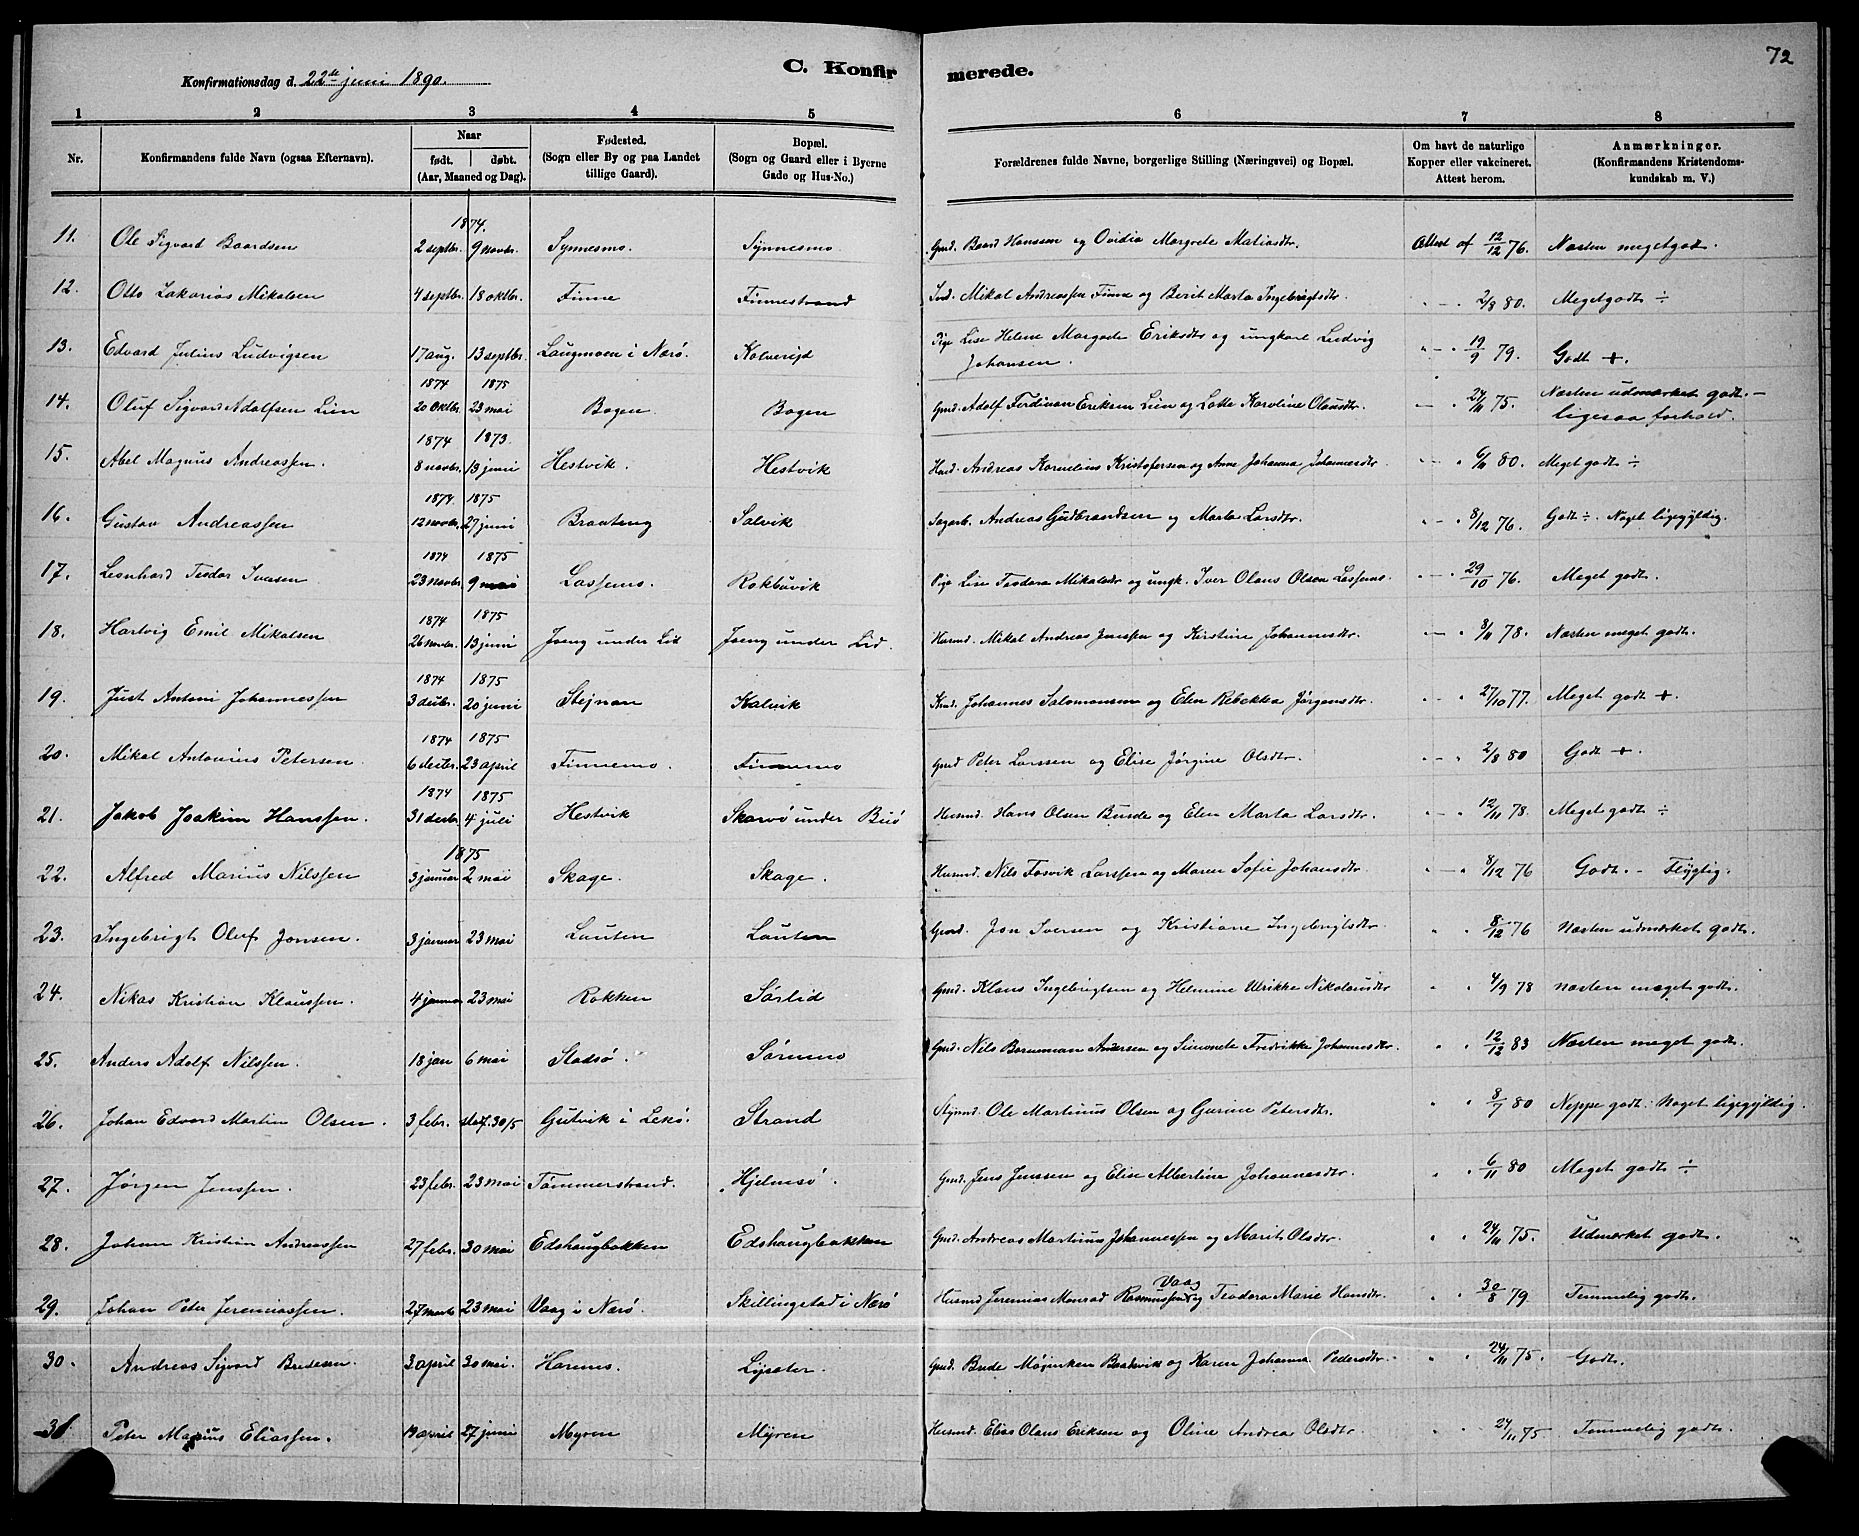 72
C. Konfirmerede.
Konfirmationsdag d. 22de juni 1890.
1 2 3 4 5 6 7 8
Nr. | Konfirmandens fulde Navn (ogsaa Efternavn). | Naar født. døbt. (Aar, Maaned og Dag). | Fødested. (Sogn eller By og paa Landet tillige Gaard). | Bopæl. (Sogn og Gaard eller i Byerne Gade og Hus-No.) | Forældrenes fulde Navne, borgerlige Stilling (Næringsvei) og Bopæl. | Om havt de naturlige Kopper eller vakcineret. Attest herom. | Anmærkninger. (Konfirmandens Kristendomskundskab m. V.)
1874.
11. Ole Sigvard Baardsen 2 septbr. 9 novbr. Synnesmo. Synnesmo. Gmd. Baard Hanssen og Ovidia Margrete Matiasdtr. Attest af 12/12 76. Næsten meget godt.
12. Otto Zakarias Mikalsen 4 septbr. 18 oktbr. Finne Finnestrand Ind. Mikal Andreassen Finne og Berit Marta Ingebrigtsdtr. " — " 2/8 80. Meget godt ÷
13. Edvard Julius Ludvigsen 17 aug. 13 septbr. Laugmoen i Nærø. Kolvereid Pige Lise Helene Margrete Eriksdtr og ungkarl Ludvig
Johansen. " — " 19/9 79. Godt +.
1874 1875
14. Oluf Sigvard Adolfsen Lien 20 oktbr. 23 mai Bogen. Bogen Gmd. Adolf Ferdinan Eriksen Lien og Lotte Karoline Olausdtr. — " 24/11 75. Næsten udmærket godt. —
ligesaa forhold.
1874 1873.
15. Abel Magnus Andreassen. 8 novbr. 13 juni Hestvik. Hestvik Husd. Andreas Kornelius Kristofersen og Anne Johanna Johannesdtr — " 6/11 80. Meget godt ÷
1874. 1875
16. Gustav Andreassen 12 novbr. 27 juni Braateng Salvik Sagarb. Andreas Gudbrandsen og Marta Larsdtr. " — " 8/12 76. Godt ÷. Noget ligegyldig.
1874 1875
17. Leonhard Teodor Iversen 23 novbr. 9 mai Lassemo. Rokbuvik Pige Lise Teodora Mikalsdtr og ungk. Iver Olaus Olsen Lassemo. " — " 29/10 76. Meget godt.
1874 1875
18. Hartvig Emil Mikalsen 26 novbr. 13 juni Joeng under Lid Joeng under Lid. Husmd. Mikal Andreas Jenssen og Kirstine Johannesdtr. " — " 8/11 78. Næsten meget godt.
1874 1875
19. Just Antoni Johannessen 3 decbr. 20 juni Stejnan Kalvik Johannes Salomonsen og Elen Rebekka Jørgensdtr. " — " 27/10 77. Meget godt +.
1874 1875.
20. Mikal Antonius Petersen 6 decbr. 23 april Finnemo. Finnemo Gmd Peter Larssen og Elise Jørgine Olsdtr. " — " 2/8 80 Godt +.
1874 1875.
21. Jakob Joakim Hanssen. 31 decbr. 4 juli Hestvik Skarvø under Buø Husmd. Hans Olsen Burde og Elen Marta Larsdtr. " — " 12/11 78. Meget godt ÷
1875
22. Alfred Marius Nilssen 3 januar 2 mai Skage. Skage. Husmd. Nils Fosvik Larssen og Maren Sofie Johansdtr. " — " 8/12 76 Godt. – Flygtig.
23. Ingebrigt Oluf Jonsen. 3 januar 23 mai Lauten Lauten Gmd. Jon Iversen og Kristiane Ingebrigtsdtr. " " 8/12 76 Næsten udmærket godt.
24. Nikas Kristian Klaussen. 4 januar 23 mai Rokken Sørlid Gmd. Klaus Ingebrigtsen og Helmine Ulrikke Nikolaisdtr " " 4/9 78 næsten meget godt.
25. Anders Adolf Nilssen. 18 jan 6 mai Stadsø. Sørmmo Gmd. Nils Borneman Andersen og Simonete Fredrikke Johannesdtr. " " 12/12 83 Næsten meget godt.
26. Johan Edvard Martin Olsen. 3 febr. 30/5 Gutvik i Lekø. Strand Ole Martinus Olsen og Gurine Petersdtr. " " 8/7 80 Neppe godt. Noget ligegyldig.
27. Jørgen Jenssen. 23 febr. 23 mai Tømmerstrand. Hjelmsø. Gmd. Jens Jenssen og Elise Albertine Johannesdtr. " " 6/11 80 Meget godt ÷
28. Johan Kristian Andreassen 27 febr. 30 mai Edshaugbakken Edshaugbakken Gmd. Andreas Martinus Johannessen og Marit Olsdtr. " " 24/11 75. Udmærket godt.
Vaag
29. Johan Peter Jeremiassen. 27 marts 23 mai Vaag i Nærø. Skillingstad i Nærø Husmd Jeremias Monrad Rasmussen og Teodora Marie Hansdtr. " " 30/8 79 Temmelig godt.
30. Andreas Sigvard Bredesen. 3 april 30 mai. Haremo. Lysater. Gmd. Brede Baakvik og Karen Johanna Pedersdtr. " " 24/11 75. Godt.
31. Peter Marius Eliassen. 19 april 27 juni Myren Myren Husmd. Elias Olaus Eriksen og Oline Andrea Olsdtr. " " 24/11 75 Temmelig godt.